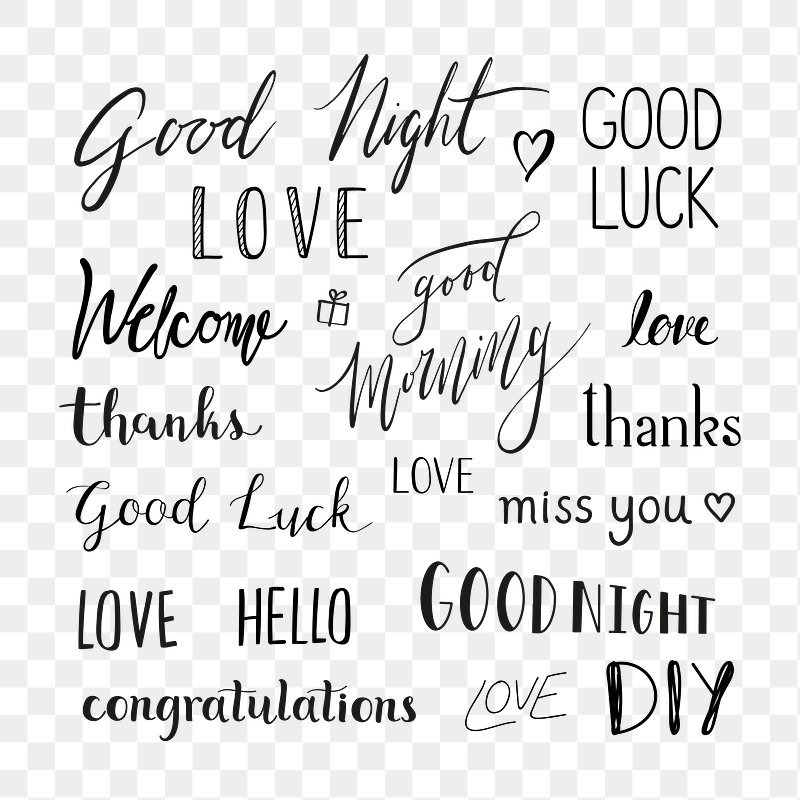 Good Night
GOOD
LUCK
LOVE
good
morning
Welcome
love
thanks
thanks
LOVE
Good Luck
miss you
LOVE
HELLO
GOOD NIGHT
congratulations
LOVE
DIY